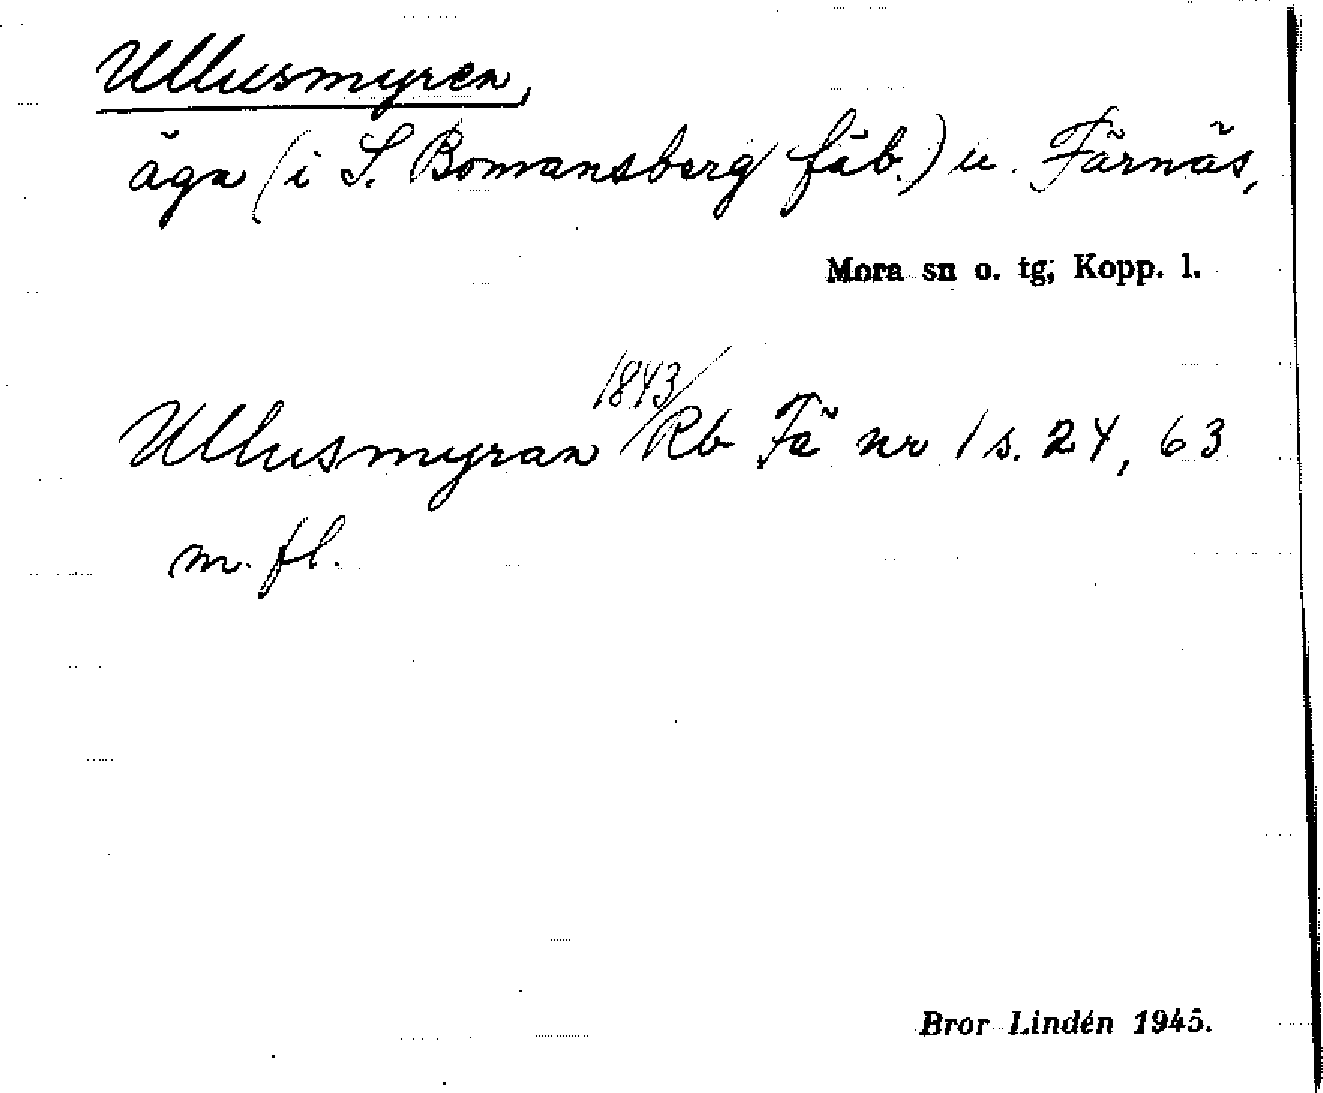 Ullusmyren,
äga (i S. Bomansberg fäb.) u. Färnäs,
Mora sn o. tg; Kopp. l.
1843
Ullusmyran Rb Fä nr 1 s. 24, 63
m. fl.
Bror Lindén 1945.